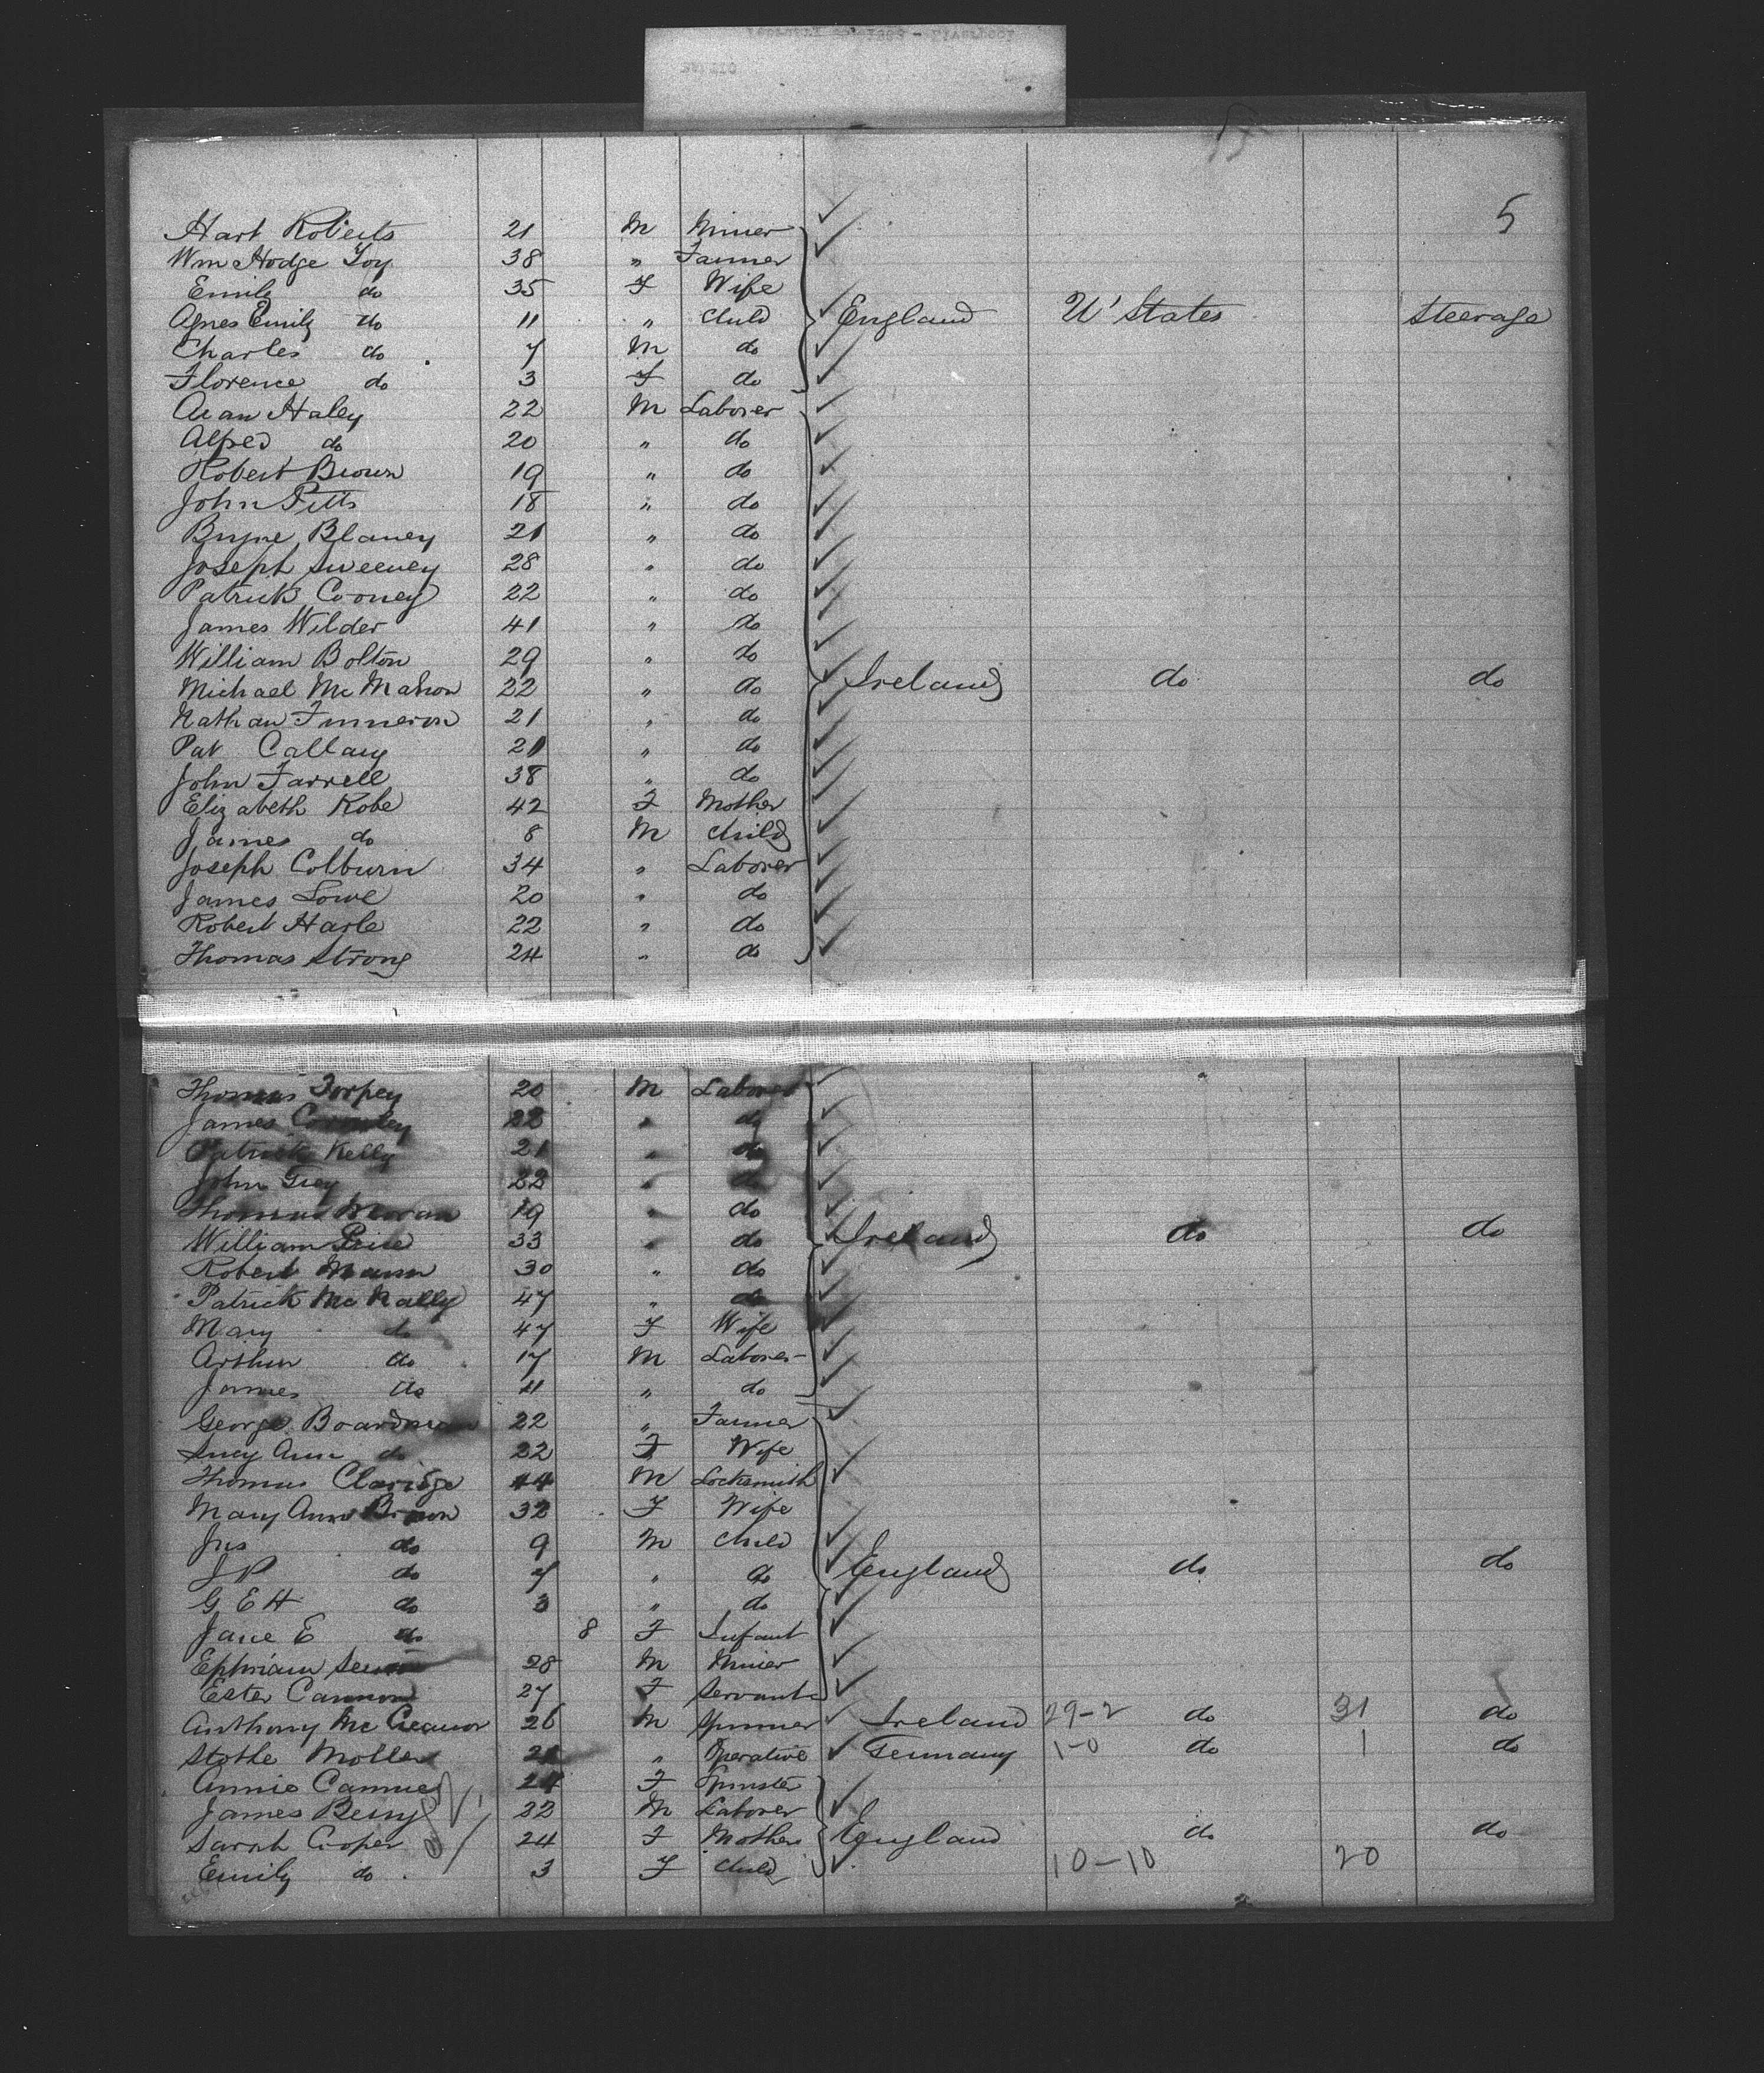 5
Hart Roberts 21 M Miner
Wm Hodge Toy 38 " Farmer
Emily do 35 F Wife
Agnes Emily do 11 " Child England U' States Steerage
Charles do 7 M do
Florence do 3 F do
Haley 22 M Laborer
Alfred do 20 " do
Robert Brown 19 " do
John Pitts 18 " do
Byrne Blaney 21 " do
Joseph Sweeney 28 " do
Patrick Cooney 22 " do
James Wilder 41 " do
William Bolton 29 " do
Michael McMahon 22 " do Ireland do do
Nathan Finneron 21 " do
Pat Callary 21 " do
John Farrell 38 " do
Elizabeth Robe 42 F Mother
James do 8 M Child
Joseph Colburn 34 " Laborer
James Lowe 20 " do
Robert Harle 22 " do
Thomas Strong 24 " do
Thomas Torpey 20 M Laborer
James 22 " do
Patrick Kelly 21 " do
John 22 " do
Thomas Moran 19 " do
William Price 33 " do Ireland do do
Robert Mann 30 " do
Patrick McNally 47 " do
Mary do 47 F Wife
Arthur do 17 M Laborer
James do 11 " do
George Boardman 22 " Farmer
Lucy Ann do 22 F Wife
Thomas Claridge 44 M Locksmith
Mary Ann 32 F Wife
Jas do 9 M Child
J P do 7 " do England do do
G E H do 3 " do
Jane E do 8 F Infant
Ephriam 28 M Miner
Ester Cannon 27 F Servant
Anthony Mc 26 M Spinner Ireland 29-2 do 31 do
Moller " Operative Germany 1-0 do 1 do
Annie 24 F Spinster
James Berry 22 M Laborer
Sarah Cooper 24 F Mother England do do
Emily do 3 F Child 10-10 20